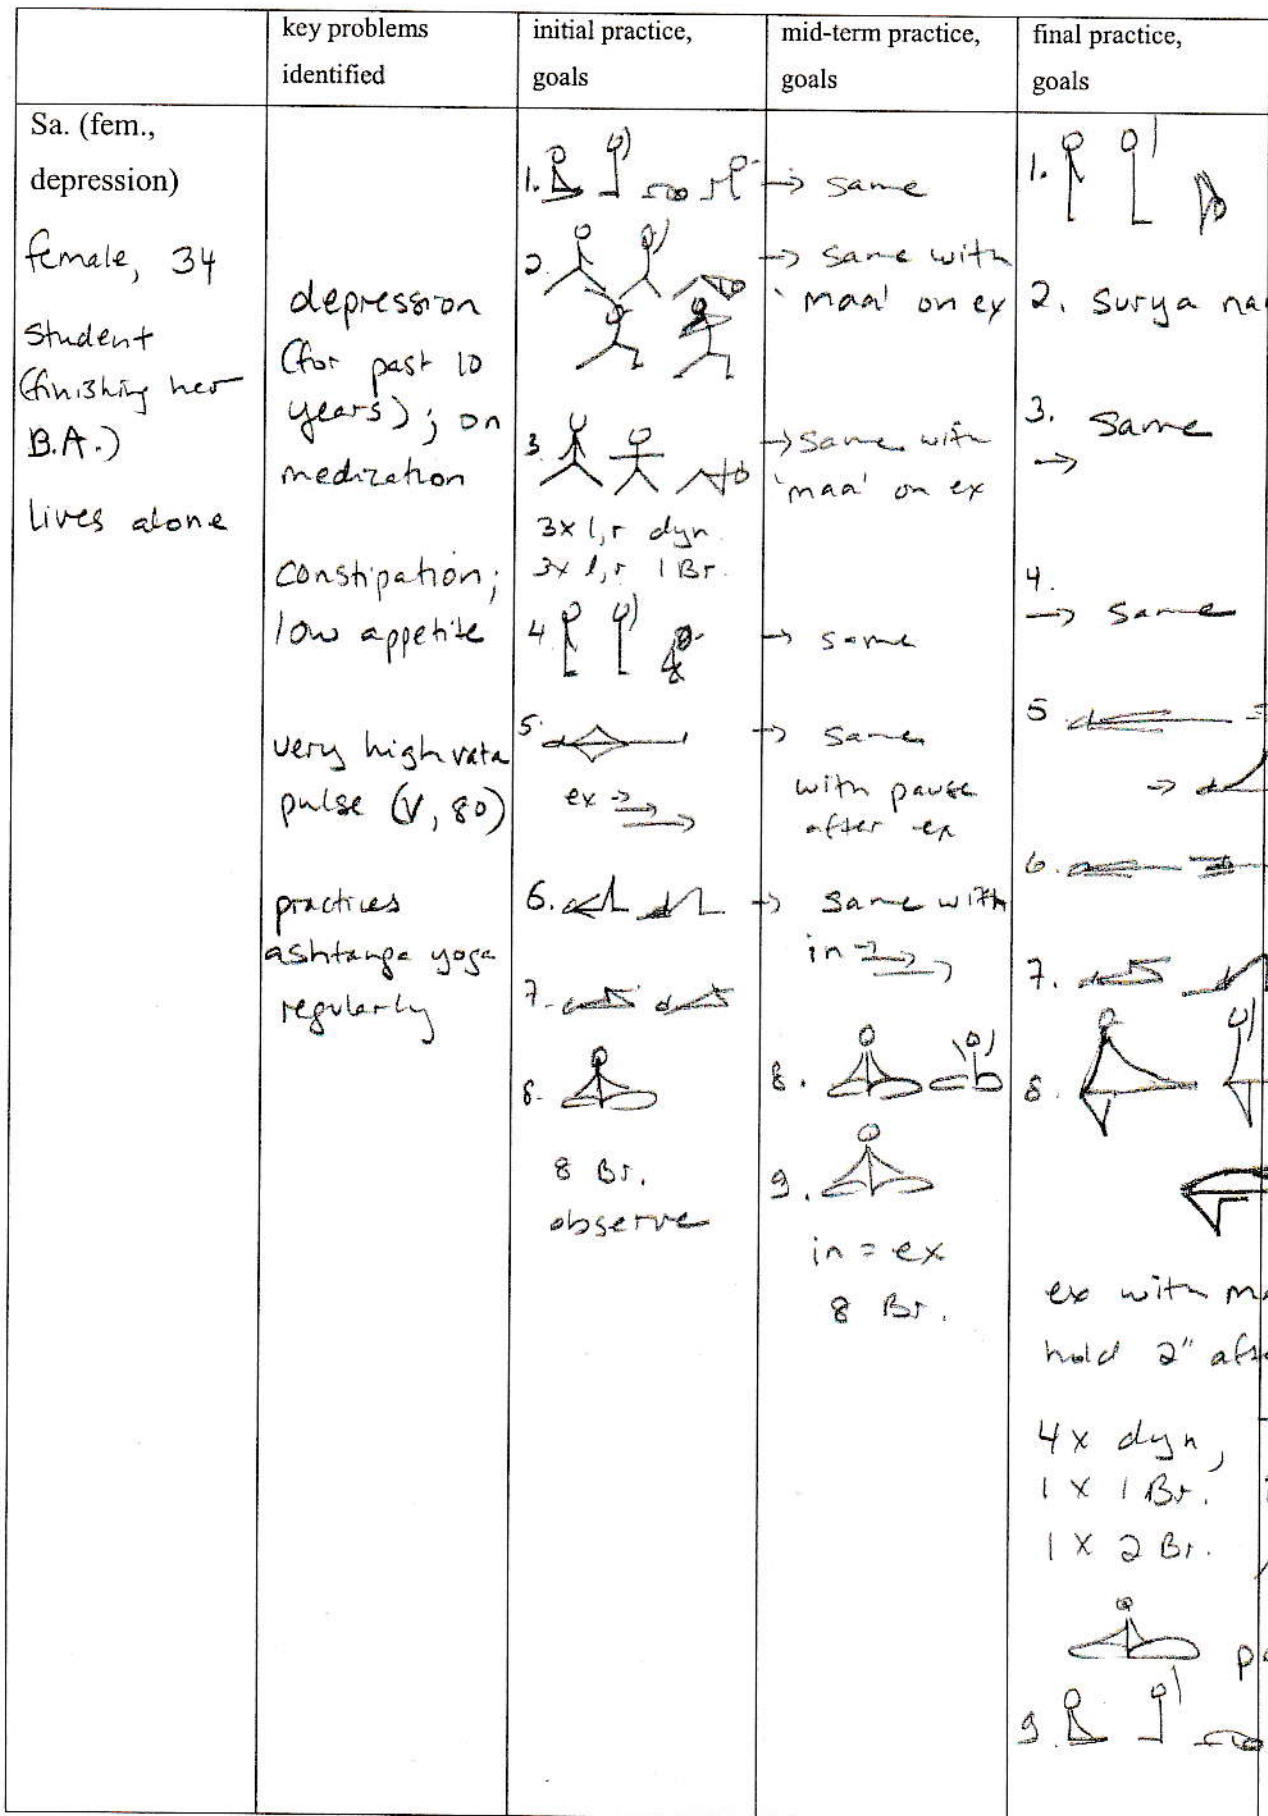 key problems
identified
initial practice,
goals
mid-term practice,
goals
final practice,
goals
Sa. (fem.,
depression)
female, 34
student
(finishing her
B.A.)
lives alone
depression
(for past 10
years); on
medication
constipation;
low appetite
very high vata
pulse (V, 80)
practices
ashtanga yoga
regularly
1.
2.
3.
3x l, r dyn.
3x l, r 1 Br.
4
5.
ex →
6.
7.
8.
8 Br.
observe
→ same
→ same with
'maa' on ex
→ same with
'maa' on ex
→ same
→ same
with pause
after ex
→ same with
in →
8.
9.
in = ex
8 Br.
1.
2. Surya na
3. same
→
4.
→ same
5
→
6.
7.
8.
ex with ma
hold 2" aft
4 x dyn,
1 x 1 Br.
1 x 2 Br.
9.